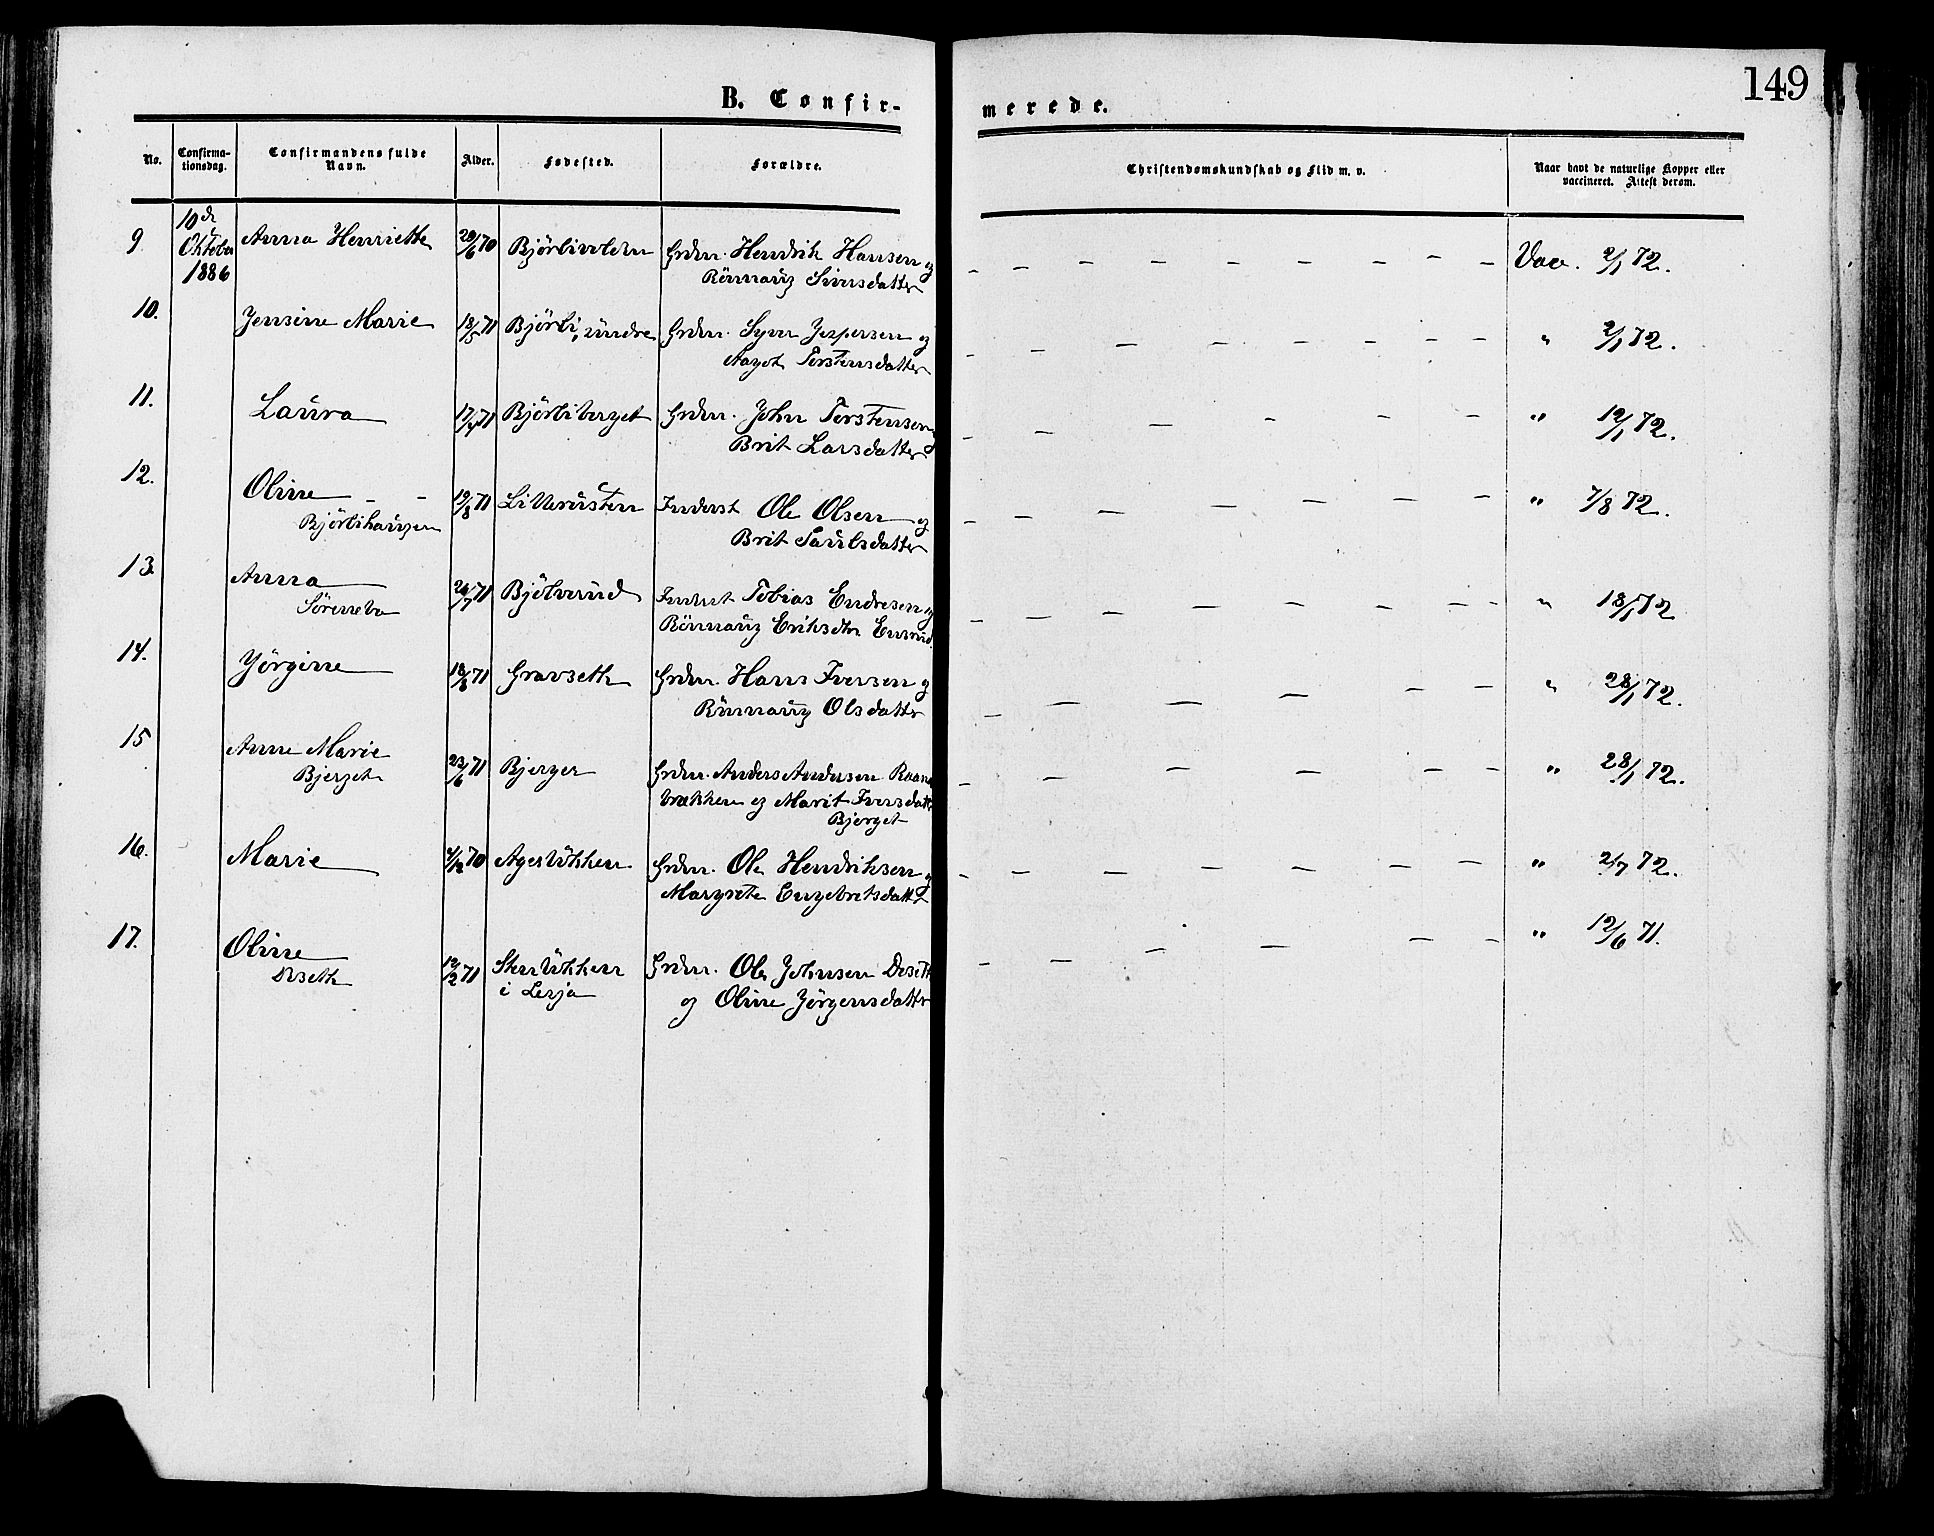 149
B. Confir-
merede.
No.
Confirma-
tionsdag.
Confirmandens fulde
Navn.
Alder.
Fødested.
Forældre.
Christendomskundskab og Flid m. v.
Naar havt de naturlige Kopper eller
vaccineret. Attest derom.
9. 10de Oktober 1886 Anna Henriette 29/6 70 Grdm. Hendrik Hansen og Vac. 2/1 72.
Rönnaug Siversdatter
10. Jensine Marie 18/5 71 Bjørli, nndre Grdm. Syver Jespersen og " 2/1 72.
Torstensdatter
11. Laura 17/7 71 Bjørliberget Grdm. John Torstensen " 12/1 72.
Brit Larsdatter
12. Oline 19/8 71 Inderst Ole Olsen og " 7/8 72.
Bjørlihaugen Brit Paulsdatter
13. Anna 26/7 71 Bjölverud Inderst Tobias Endresen og " 18/1 72
Rönnaug Eriksdtr Enerud
14. Jörgine 18/8 71 Gravseth Grdm. Hans Iversen og " 28/1 72.
Rönnaug Olsdatter
15 Anne Marie 23/6 71 Bjerger Grdm. Anders Andersen " 28/1 72.
Bjerget og Marit Iversdatt
Bjerget
16. Marie 4/12 70 Agerlökken Grdm. Ole Hendriksen og " 2/7 72.
Margrete Engebretsdatt
17. Oline 12/2 71 Stenlökken Grdm. Ole Johnsen Dseth " 12/6 71.
Dseth i Lesja og Oline Jörgensdatter